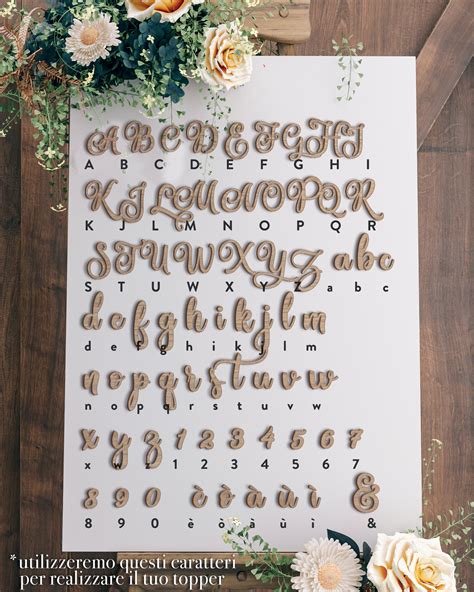 A B C D E F G H I
A B C D E F G H I
K J L M N O P Q R
K J L M N O P Q R
S T U W X Y Z a b c
S T U W X Y Z a b c
d e f g h i j k l m
d e f g h i j k l m
n o p q r s t u v w
n o p q r s t u v w
x y z 1 2 3 4 5 6 7
x w z 1 2 3 4 5 6 7
8 9 0 è ò à ù ì &
8 9 0 è ò à ù ì &
*utilizzeremo questi caratteri
per realizzare il tuo topper